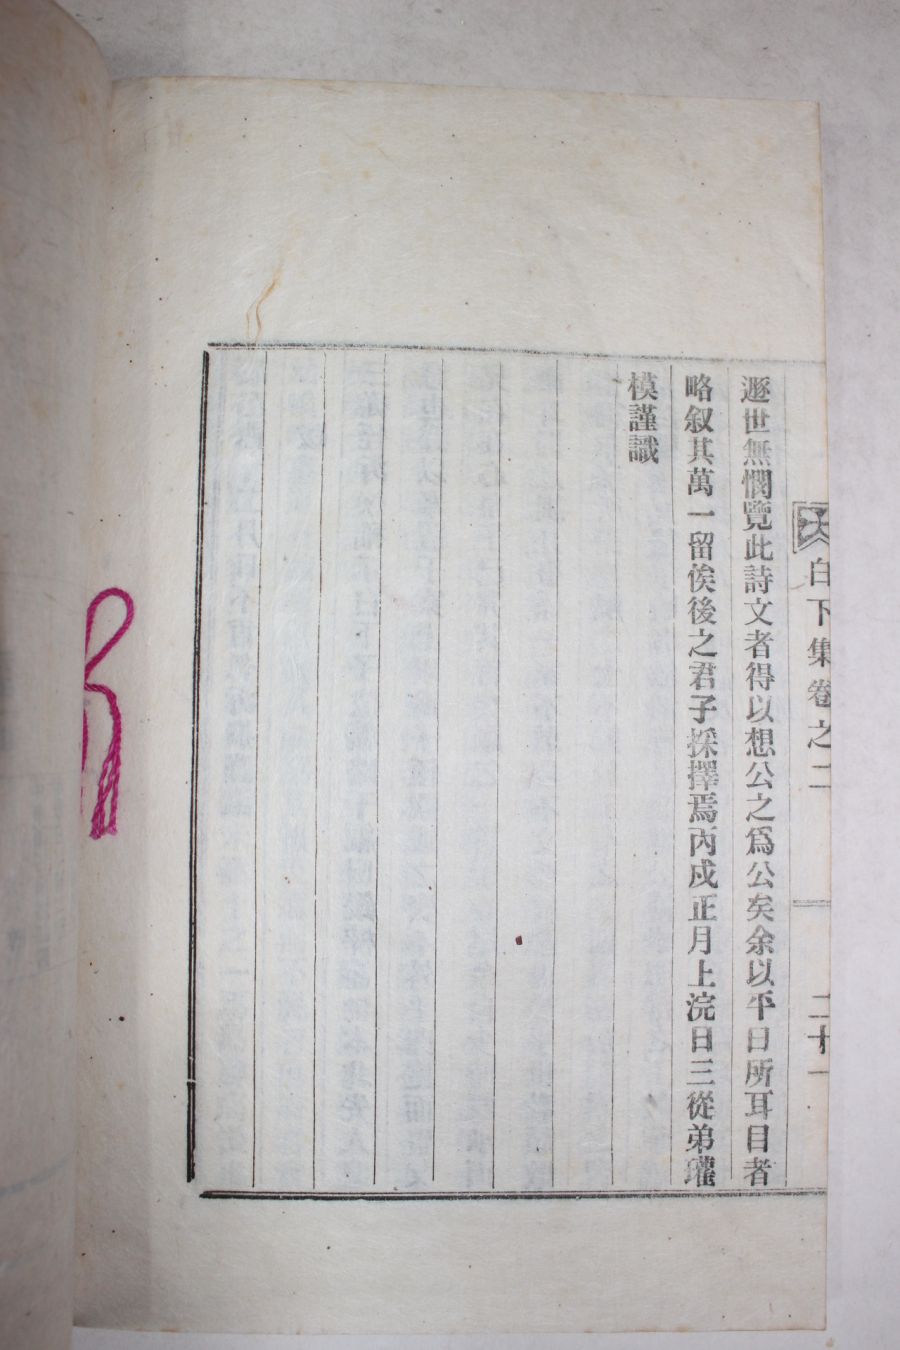 白下集卷之二
二十一
遯世無憫覽此詩文者得以想公之爲公矣余以平日所耳目者
略叙其萬一留俟後之君子採擇焉丙戍正月上浣日三從弟瓘
模謹識